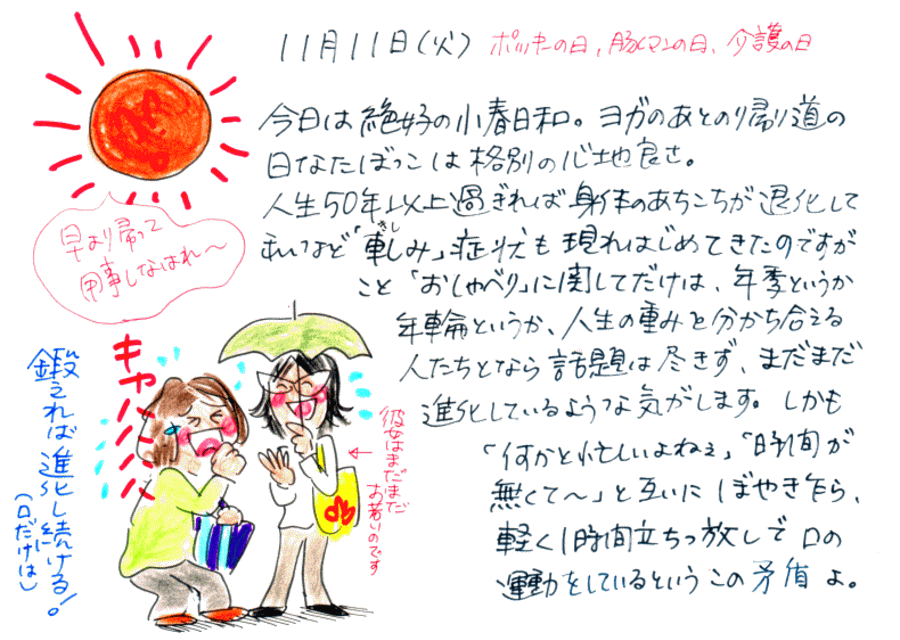 11月11日(火) ポッキーの日, 腸(マン)の日、介護の日
今日は絶好の小春日和。ヨガのあとのり帰り道の
日なたぼっこは格別の心地良さ。
人生50年以上過ぎれば身体のあちこちが退化して
あいなど「軋しみ」症状も現れはじめてきたのですが
きし
こと「おしゃべり」に関してだけは、年季というか
年輪というか、人生の重みを分かち合える
人たちとなら話題は尽きず、まだまだ
進化しているような気がします。しかも
「何かと忙しいよねぇ」「時間が
無くて〜」と互いにぼやき乍ら、
軽く1時間立ちっ放しで口の
運動をしているというこの矛盾よ。
早より帰って
用事しなはれ〜
キャハハハハ
鍛えれば進化し続ける!
(口だけは)
彼女はまだまだ
お若いのです